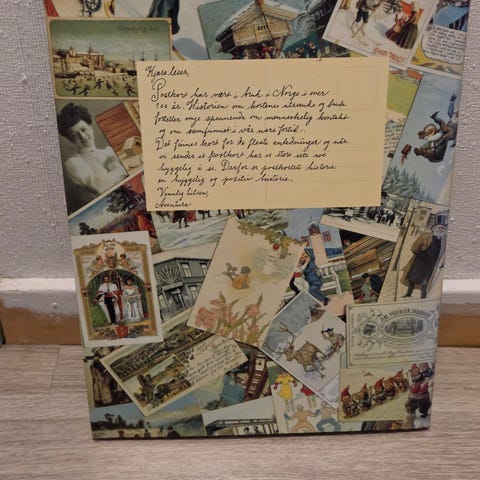 Kjære leser,
Postkort har vært i bruk i Norge i over
100 år. Historien om kortenes utseende og bruk
forteller mye spennende om menneskelig kontakt
og om samfunnet i vår nære fortid.
Det finnes kort for de fleste anledninger og når
vi sender et postkort har vi store sett noe
hyggelig å si. Derfor er postkortets historie
en hyggelig og positiv historie.
Vennlig hilsen,
Aventura